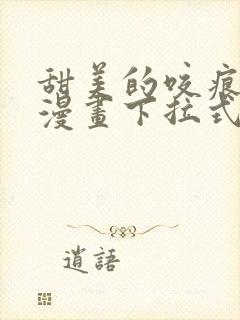 甜美的咬痕
漫畫下拉式
逍語